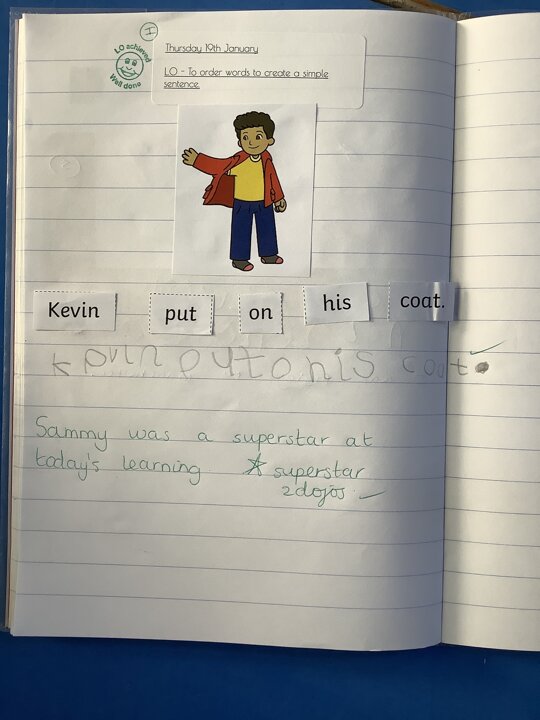 I
LO achieved
Well done
Thursday 19th January
LO - To order words to create a simple
sentence.
Kevin put on his coat.
kevin put o his coat.
Sammy was a superstar at
today's learning ☆ superstar
2 dojos